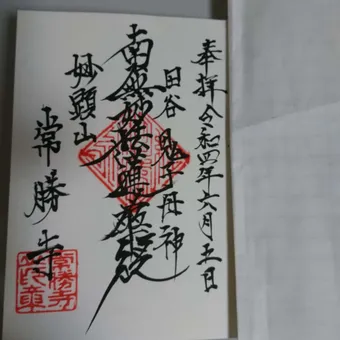 奉拝 令和四年六月五日
田谷 鬼子母神
南無妙法蓮華経
妙顕山
常勝寺
常勝寺印章